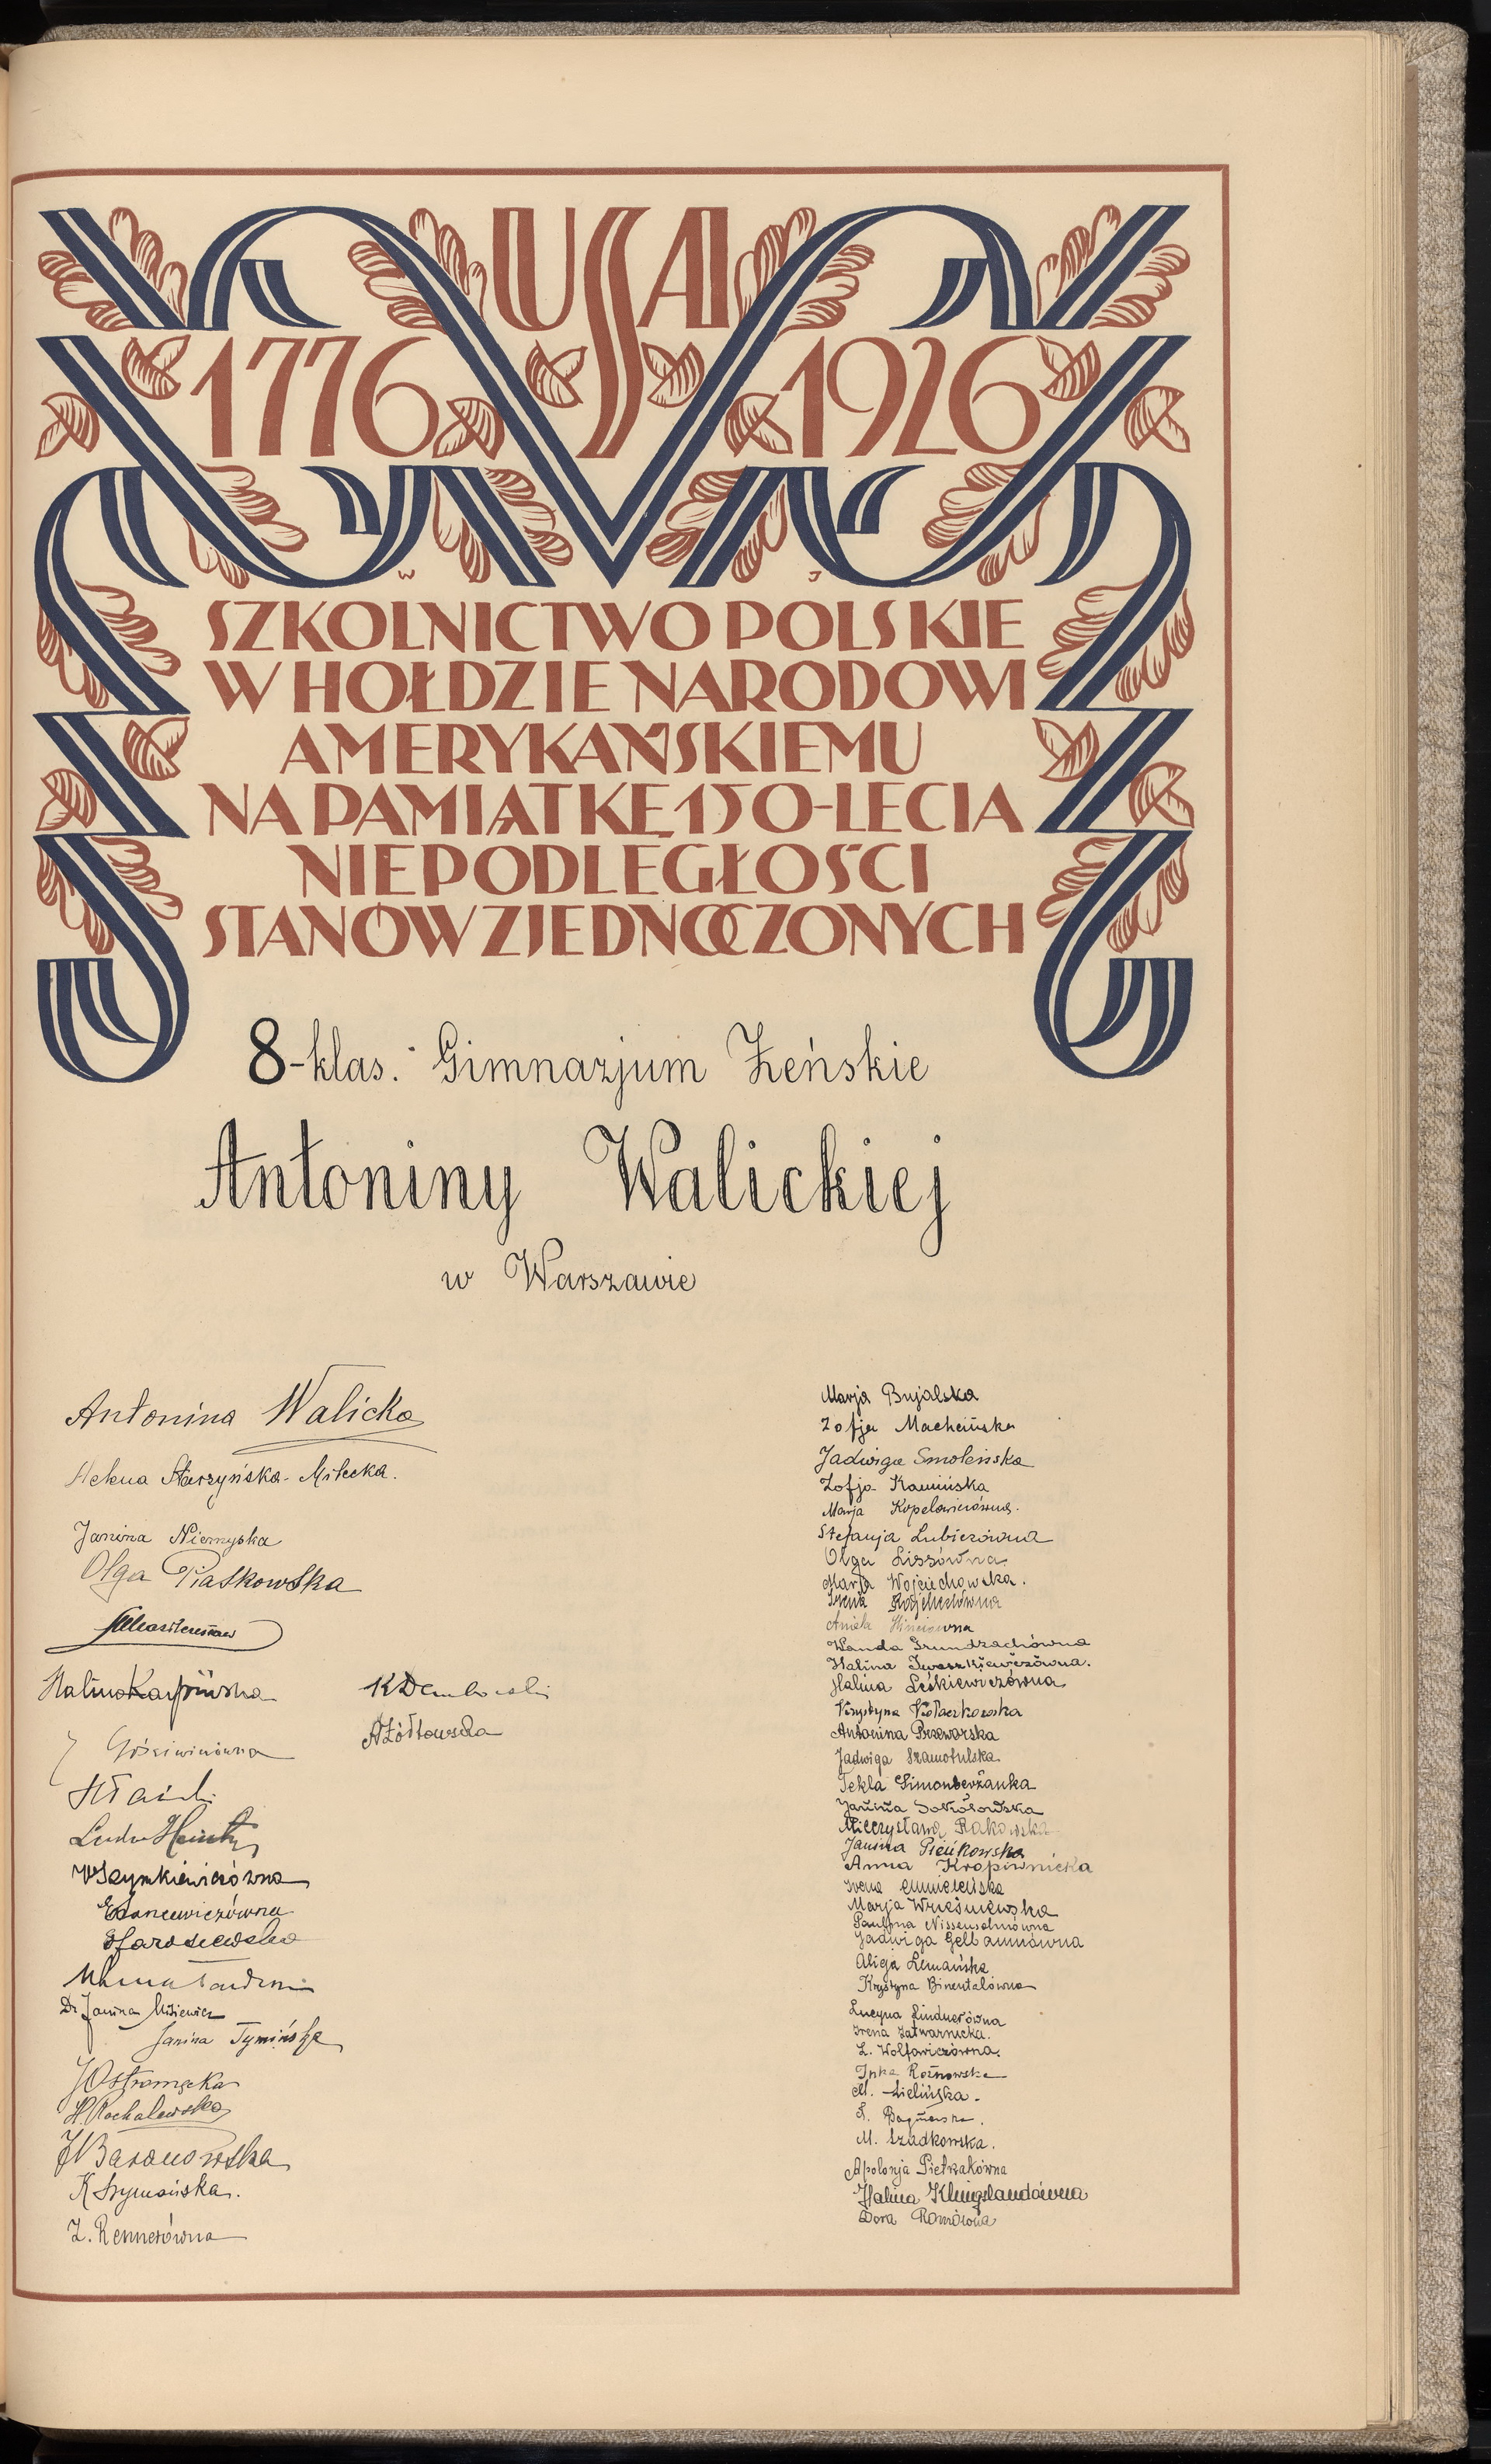 USA
1776 1926
W J
SZKOLNICTWO POLSKIE
W HOŁDZIE NARODOWI
AMERYKAŃSKIEMU
NA PAMIĄTKĘ 150-LECIA
NIEPODLEGŁOŚCI
STANÓW ZJEDNOCZONYCH
8-klas. Gimnazjum Żeńskie
Antoniny Walickiej
w Warszawie
Antonina Walicka
Helena Starzyńska-Miłecka.
Janina Niemyska
Olga Piaskowska
Halina Karpińska
Gościwinówna
W Szymkiewiczówna
Dr Janina Misiewicz
Janina Tymińska
J Ostromęcka
H. Rochalewska
J Baranowska
K Szymańska.
Z. Rennerówna
K Dembowski
A Żółtowska
Marja Bujalska
Zofja Macheińska
Jadwiga Smoleńska
Zofja Kamińska
Marja Kopelowiczówna.
Stefanja Lubiczówna
Olga Lissówna
Marja Wojciechowska.
Irena
Aniela
Wanda Grundzachówna
Halina Iwaszkiewiczówna.
Halina Leśkiewiczówna
Krystyna
Antonina Przeworska
Jadwiga Szamotulska
Tekla Simonberżanka
Janina Sokołowska
Mieczysława Rakowska
Janina Pieńkowska
Anna Kropiwnicka
Irena Chmieleńska
Marja Wrześniewska
Paulina Nissensohnówna
Jadwiga Gelbaumówna
Alicja Lemańska
Krystyna Binentalówna
Lucyna Lindnerówna
Irena Zatwarnicka.
L. Wolfowiczówna.
Inka Rożnowska
M. Zielińska.
M. Szadkowska.
Apolonja Pietrzakówna
Halina Klingslandówna
Dora Romówna